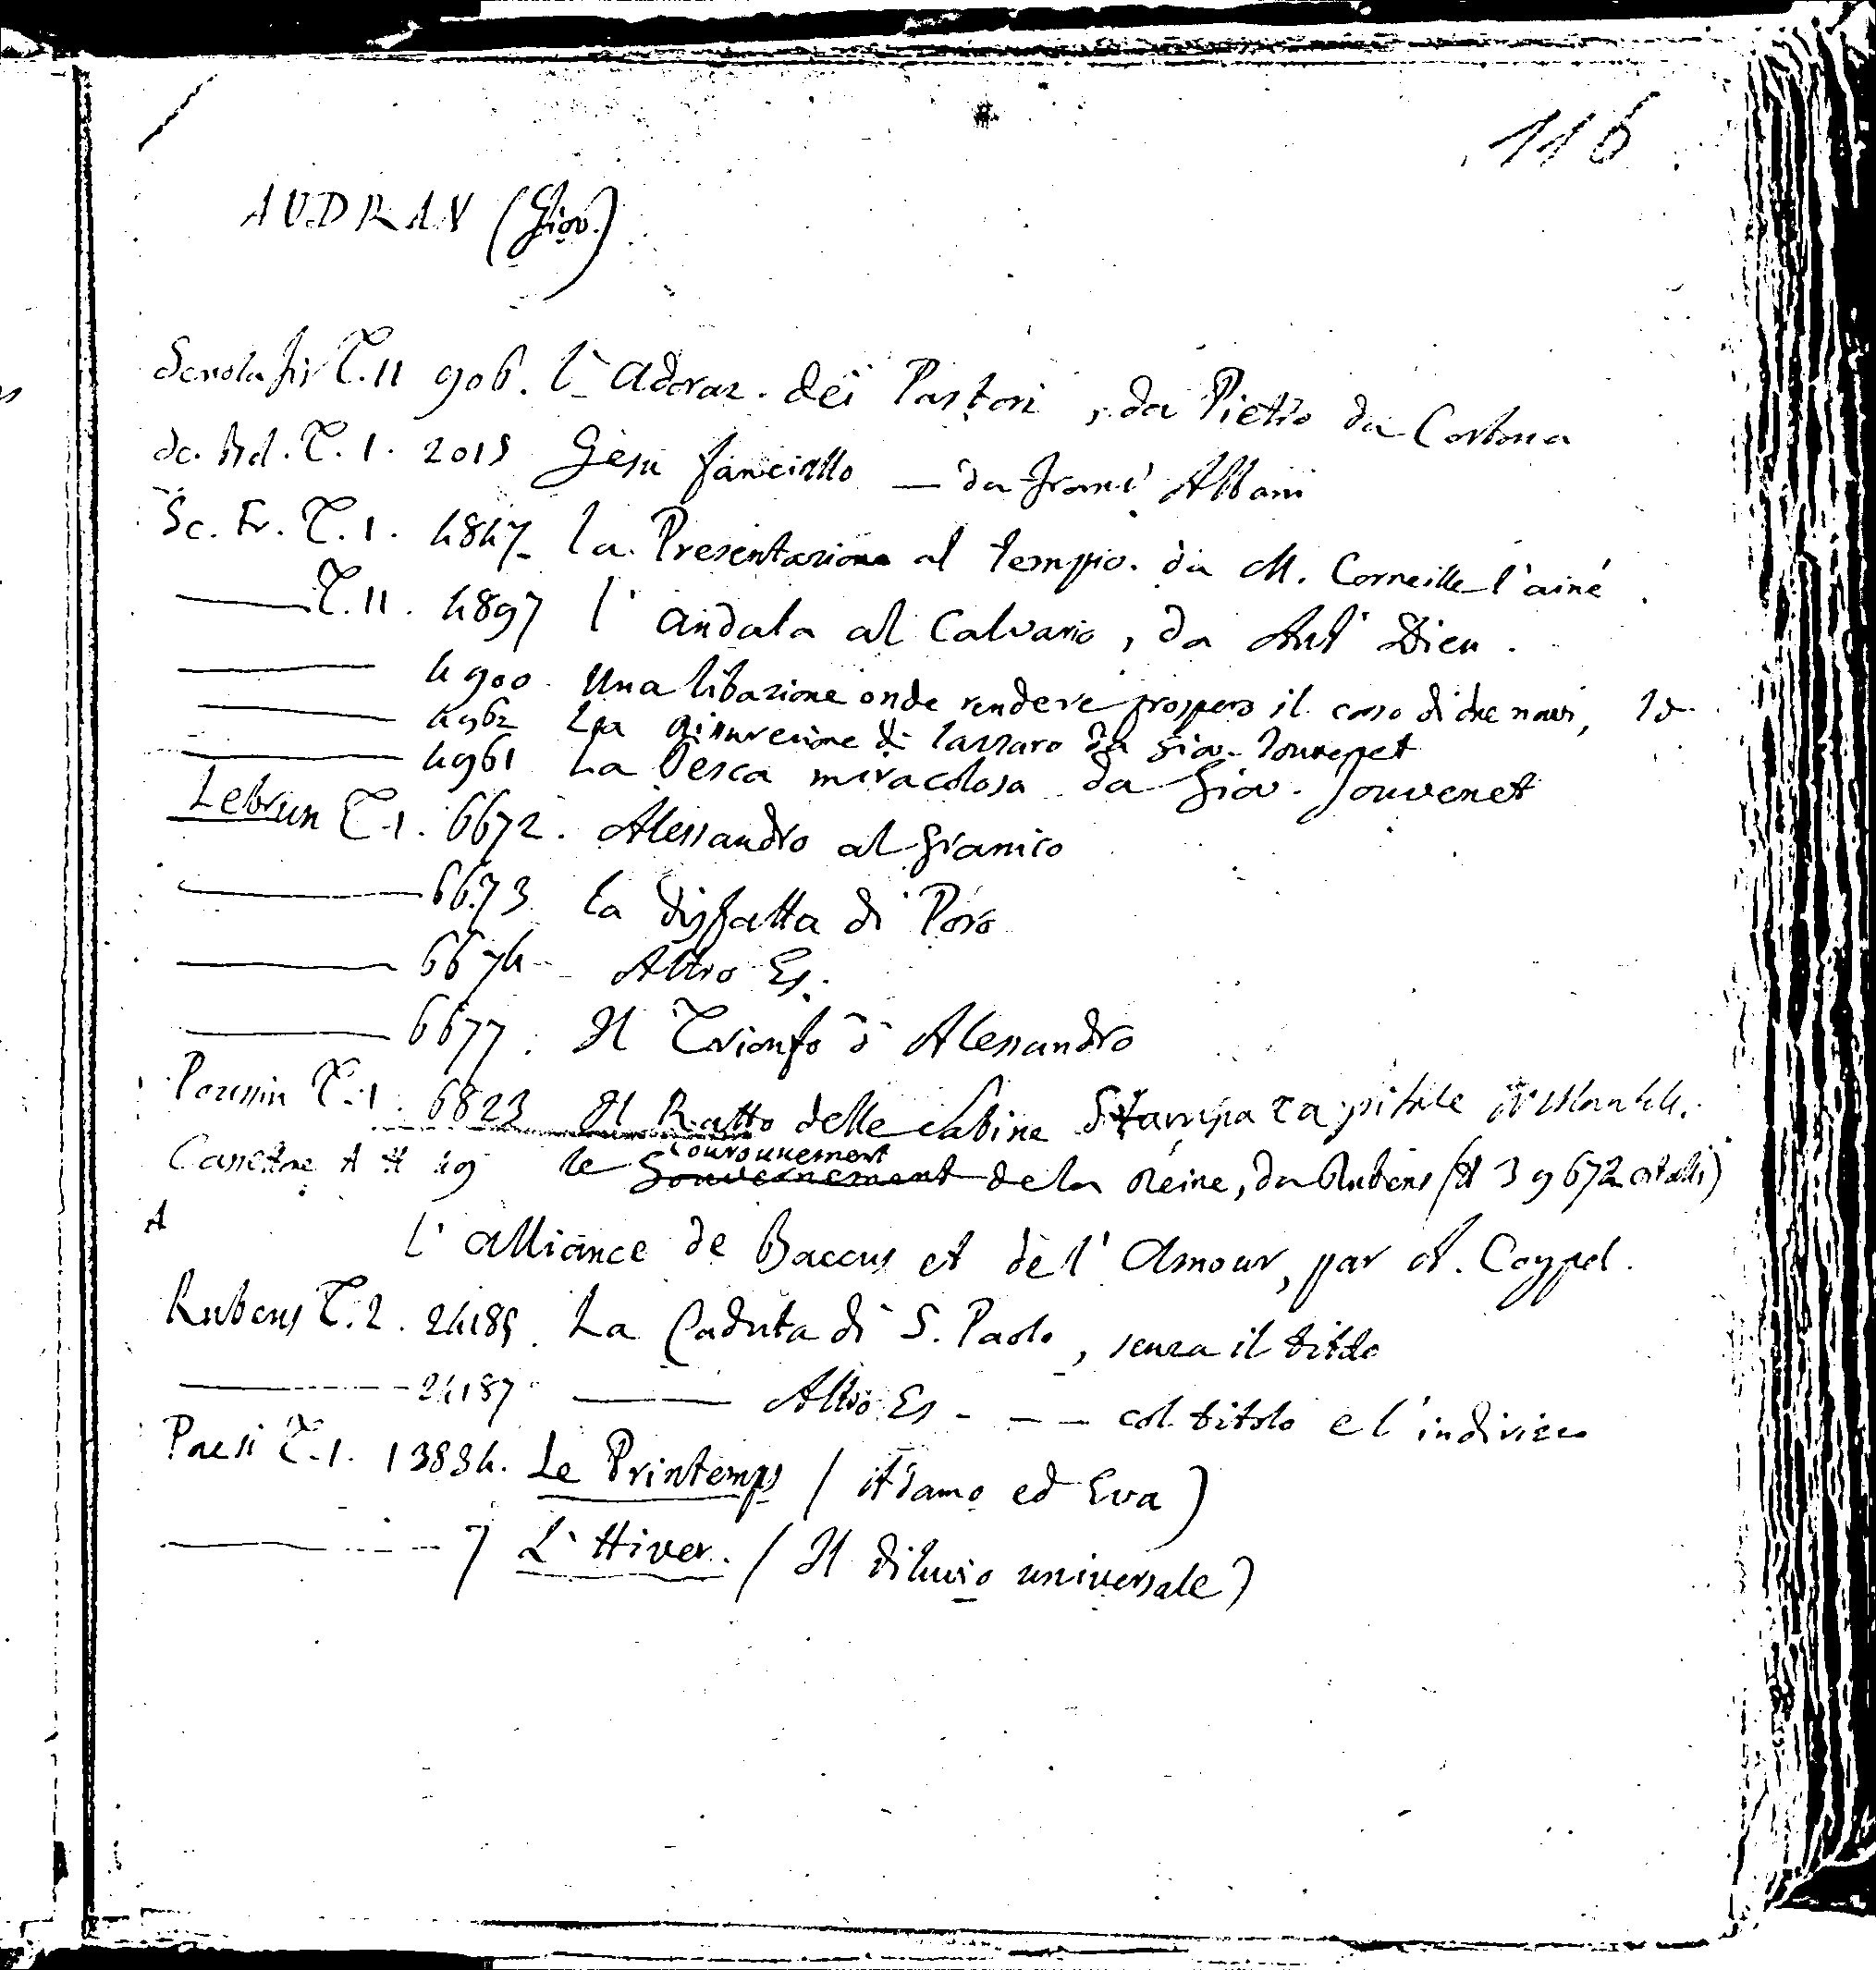 116
AUDRAN (Giov.)
Scuola fir T. II 906. L'Adoraz. dei Pastori, da Pietro da Cortona
Sc. Bol. T. 1. 2015 Gesu fanciullo — da Franc. Albani
Sc. Fr. T. 1. 4847 la Presentazione al tempio. da M. Corneille l'ainé.
— T. II. 4897 l'andata al Calvario, da Ant. Dieu.
— 4900. Una libazione onde rendere prospero il corso di due navi, Id.
— 4962 La risurrezione di Lazzaro da Gio. Jouvenet
— 4961 La Pesca miracolosa da Giov. Jouvenet
Lebrun T. 1. 6672. Alessandro al Granico
— 6673 La disfatta di Poro
— 6674 — Altro Es.
— 6677. Il Trionfo d'Alessandro
Poussin T. 1. 6823 Il Ratto delle Sabine Stampa capitale
Couronnement
49 le Gouvernement de la Reine, da Rubens (A 39672
A l'alliance de Baccus et de l'Amour, par A. Coypel.
Rubens T. 2. 24185. La Caduta di S. Paolo, senza il titolo
— 24187 — Altro Es — — — col titolo e l'indirizzo
Paesi T. 1. 13834. Le Printemps (Adamo ed Eva)
— 7 L'Hiver. (Il diluvio universale)